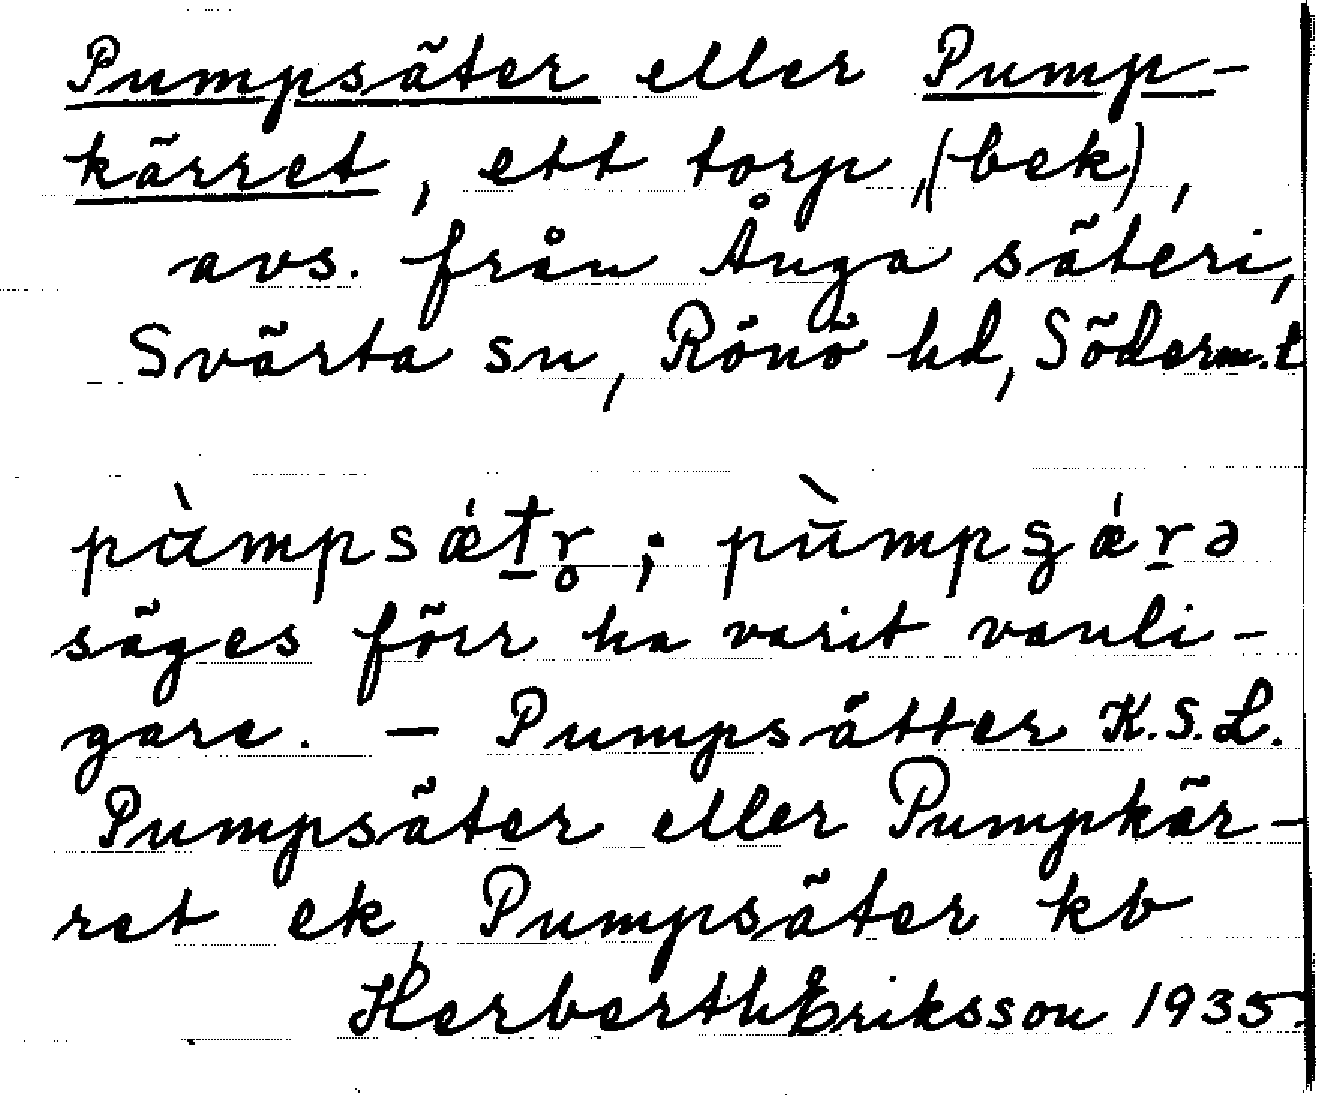 Pumpsäter eller Pump-
kärret, ett torp, (bek),
avs. från Ånga säteri,
Svärta sn, Rönö hd, Söderm.l
pùmpsǽt̠r̥; pùmpʂǽr̠ə
säges förr ha varit vanli-
gare. – Pumpsätter K.S.L.
Pumpsäter eller Pumpkär-
ret ek, Pumpsäter kb
Herberth Eriksson 1935.